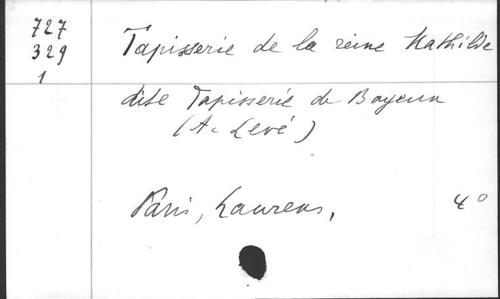 727
329
1
Tapisserie de la reine Mathilde
dite Tapisserie de Bayeux
(A. Levé)
Paris, Laurens,
4°